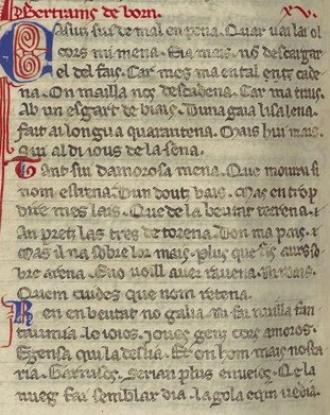 Bertrams de born. XV.
Casut sui de mal en pena. Quar vai lai ol
cors mi mena. Ia mais. no descargar
el del fais. Car mes ma en tal en cade
na. On mailla nos descadena. Car ma trais.
Ab un esgart de biais. Duna gaia lisa lena.
fait ai longua quarantena. Mais hui mais
qui al di ious de la sena.
Tant sui damorosa mena. Que mour si
nom estrena. Dun dout bais. Mas en trop
dire mes lais. Que de la beutat terrena.
An pretz las tres de torena. Don ma pais.
Mas il na sobre lor mais. plus que fis aurs so
bre arena. Eno voill aver ravena.
Quem cuides que nom retena.
Ren en beutat no galia. Ni fai nuilla fan
taumia. Lo ioios. Ioves gens cors amoros.
E gensa qui la deslia. Et on hom mais nosta
ria. Garnisos. Serian plus enveios. Qe la
nueg fai semblar dia. La gola e qin vedia.